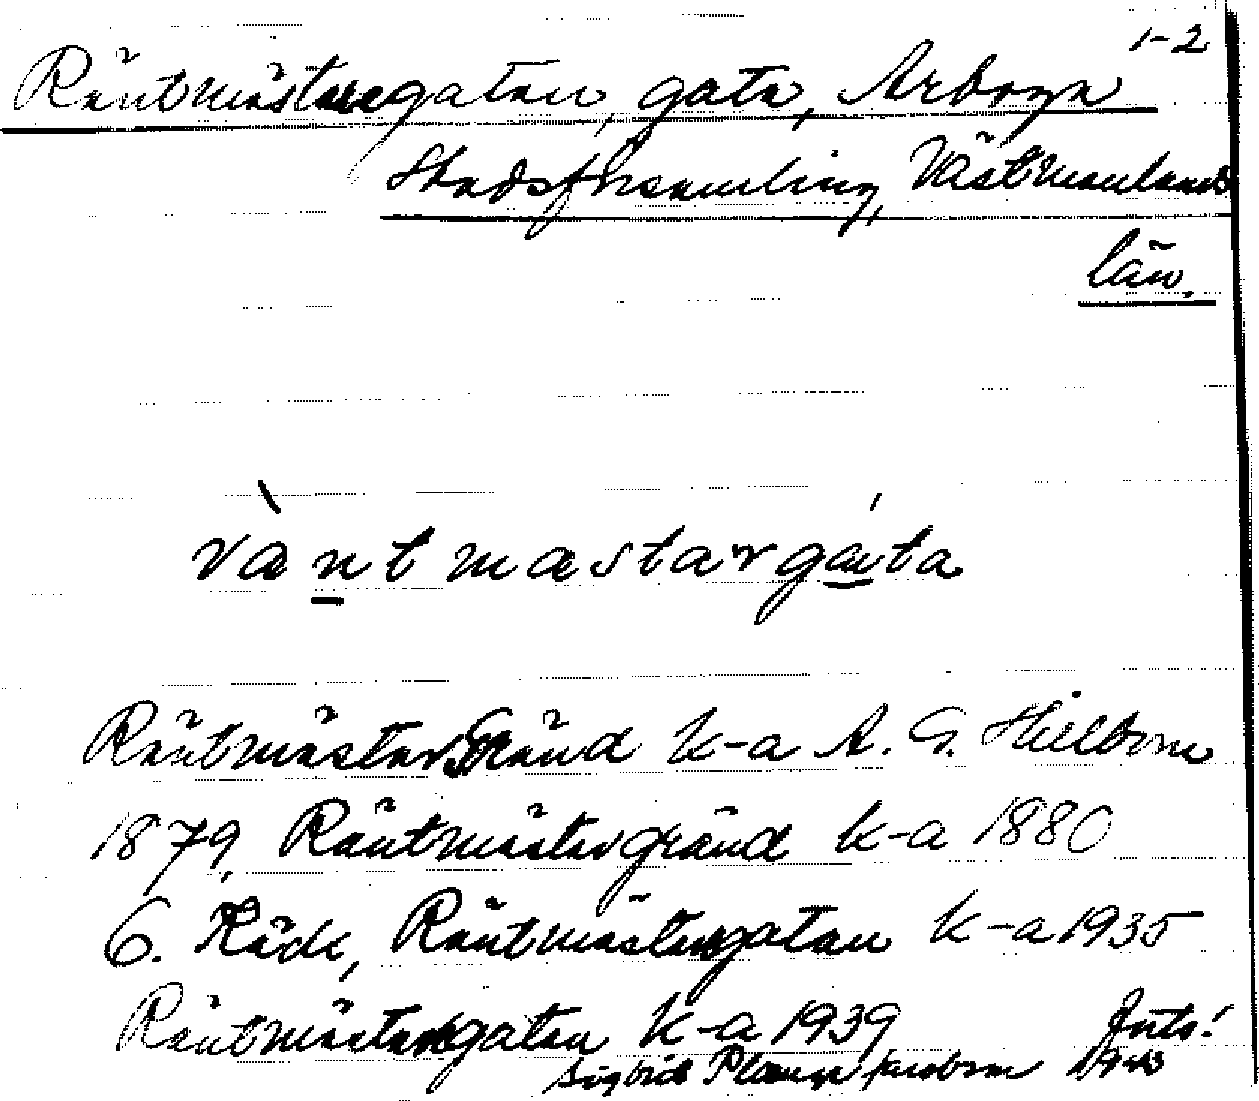 1-2
Räntmästaregatan, gata, Arboga
Stadsförsamling, Västmanlands
län.
ràntmæstargata
Räntmästargränd k-a A. G. Hillbom
1879, Räntmästergränd k-a 1880
G. Räde, Räntmästergatan k-a 1935
Räntmästaregatan k-a 1939
Sigbrit Plænge Jacobson